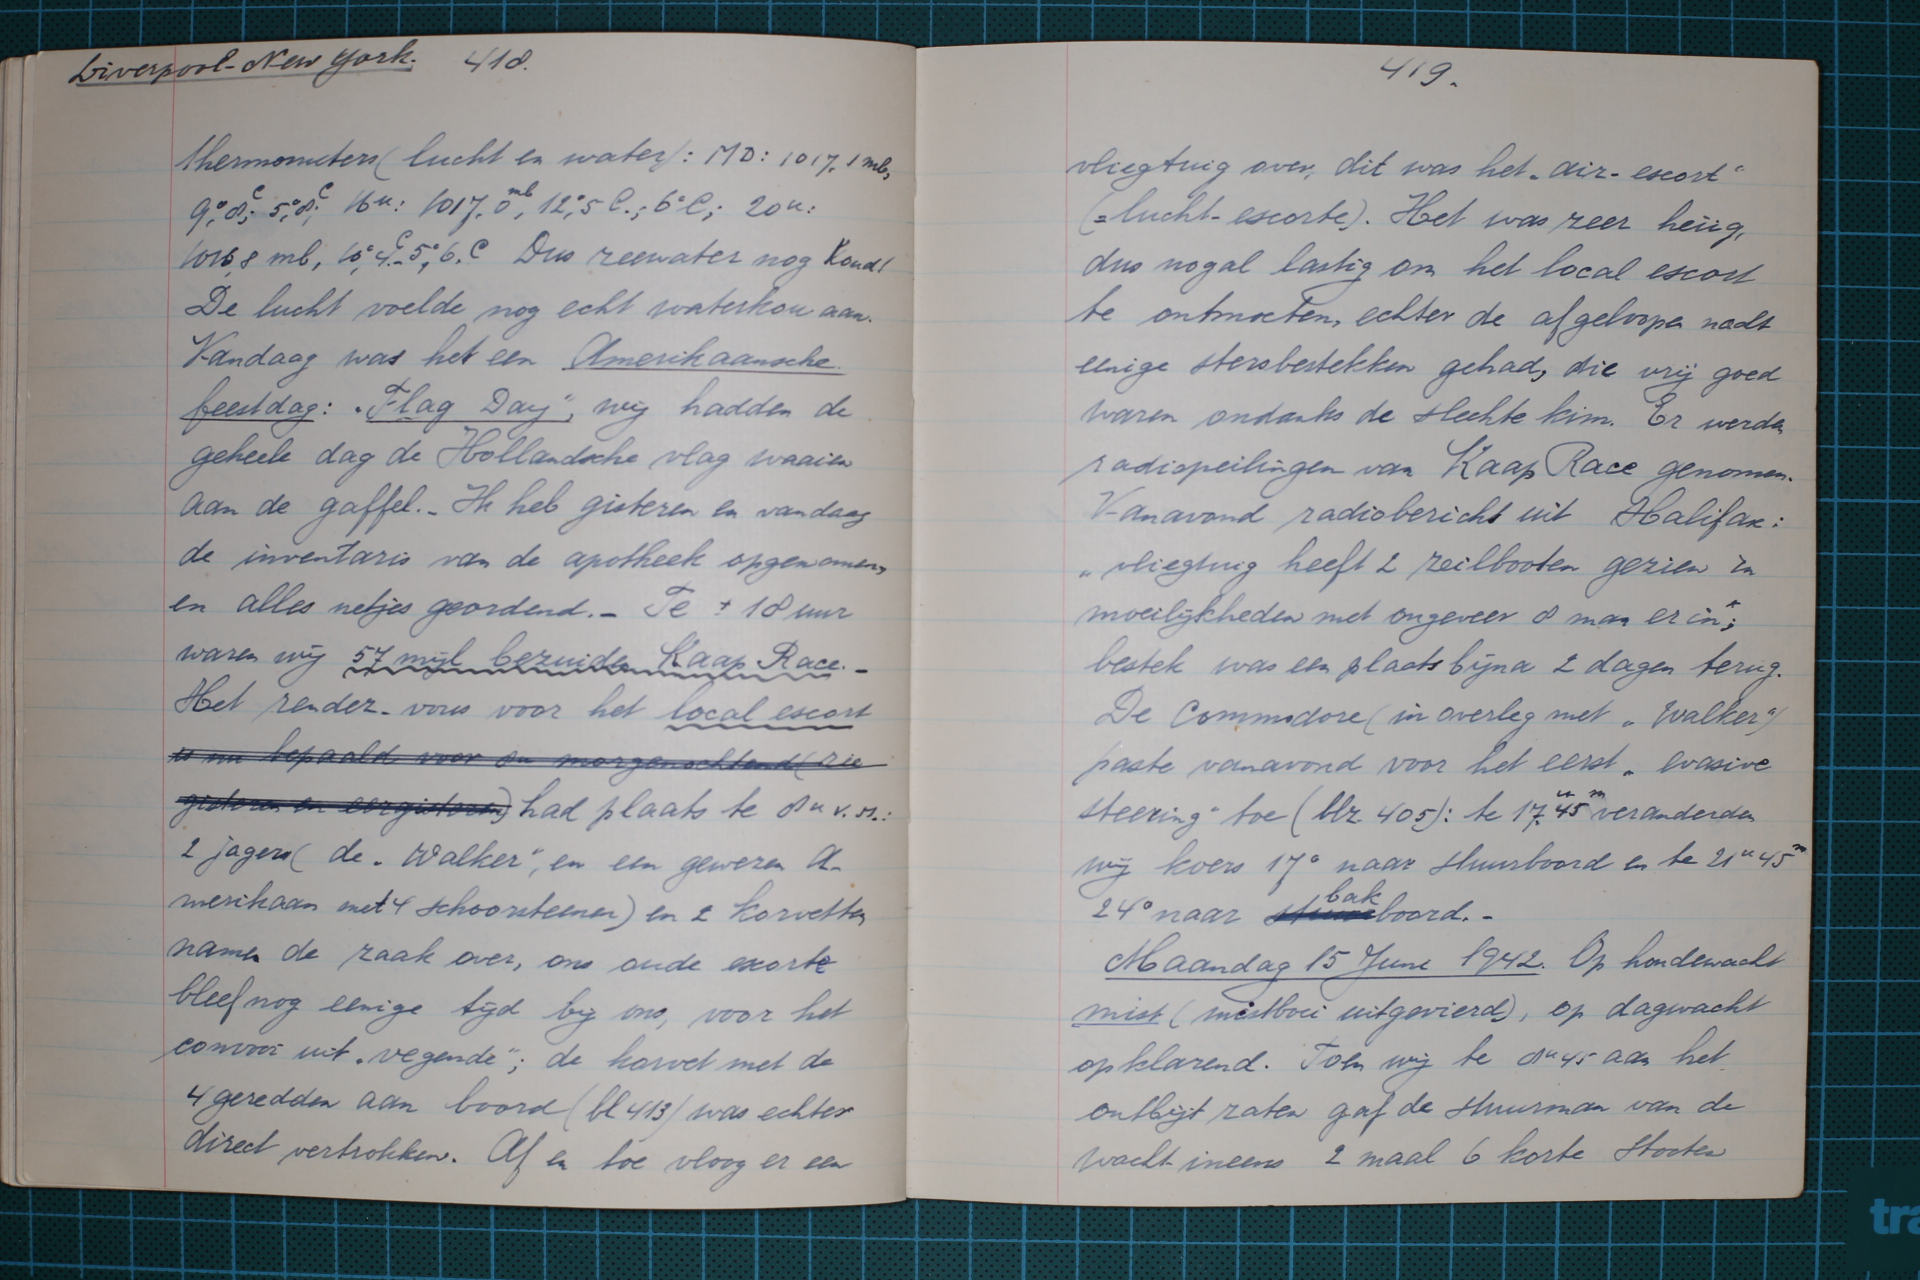 Liverpool-New York. 418.
thermometers (lucht en water): MD: 1017,1 mb,
9°,8 C; 5°,8 C; 16u: 1017,0 mb, 12°,5 C.; 6°C; 20u:
1016,8 mb, 10°,4 C - 5°,6.C Dus zeewater nog koud!
De lucht voelde nog echt waterkou aan.
Vandaag was het een Amerikaansche
feestdag: „Flag Day", wij hadden de
geheele dag de Hollandsche vlag waaien
aan de gaffel. - Ik heb gisteren en vandaag
de inventaris van de apotheek opgenomen,
en alles netjes geordend. - Te ± 18 uur
waren wij 57 mijl bezuiden Kaap Race. -
Het rendez-vous voor het local escort
is nu bepaald voor 8u morgenochtend (zie
gisteren en eergisteren) had plaats te 8u v.m.:
2 jagers (de „Walker", en een gewezen A-
merikaan met 4 schoorsteenen) en 2 korvetten
namen de zaak over, ons oude escorte
bleef nog eenige tijd bij ons, voor het
convooi uit „vegende"; de korvet met de
4 geredden aan boord (bl 413) was echter
direct vertrokken. Af en toe vloog er een
419.
vliegtuig over, dit was het „air-escort"
(= lucht-escorte). Het was zeer heiig,
dus nogal lastig om het local escort
te ontmoeten, echter de afgeloopen nacht
eenige stersbestekken gehad, die vrij goed
waren ondanks de slechte kim. Er werden
radiopeilingen van Kaap Race genomen.
Vanavond radiobericht uit Halifax:
„vliegtuig heeft 2 zeilbooten gezien in
moeilijkheden met ongeveer 8 man er in";
bestek was een plaats bijna 2 dagen terug.
De Commodore (in overleg met „Walker")
paste vanavond voor het eerst „evasive
steering" toe (blz. 405): te 17u 45m veranderden
wij koers 17° naar stuurboord en te 21u 45m
24° naar stuur bakboord. -
Maandag 15 June 1942. Op hondewacht
mist (mistboei uitgevierd), op dagwacht
opklarend. Toen wij te 8u 45 aan het
ontbijt zaten gaf de stuurman van de
wacht ineens 2 maal 6 korte stooten
tra